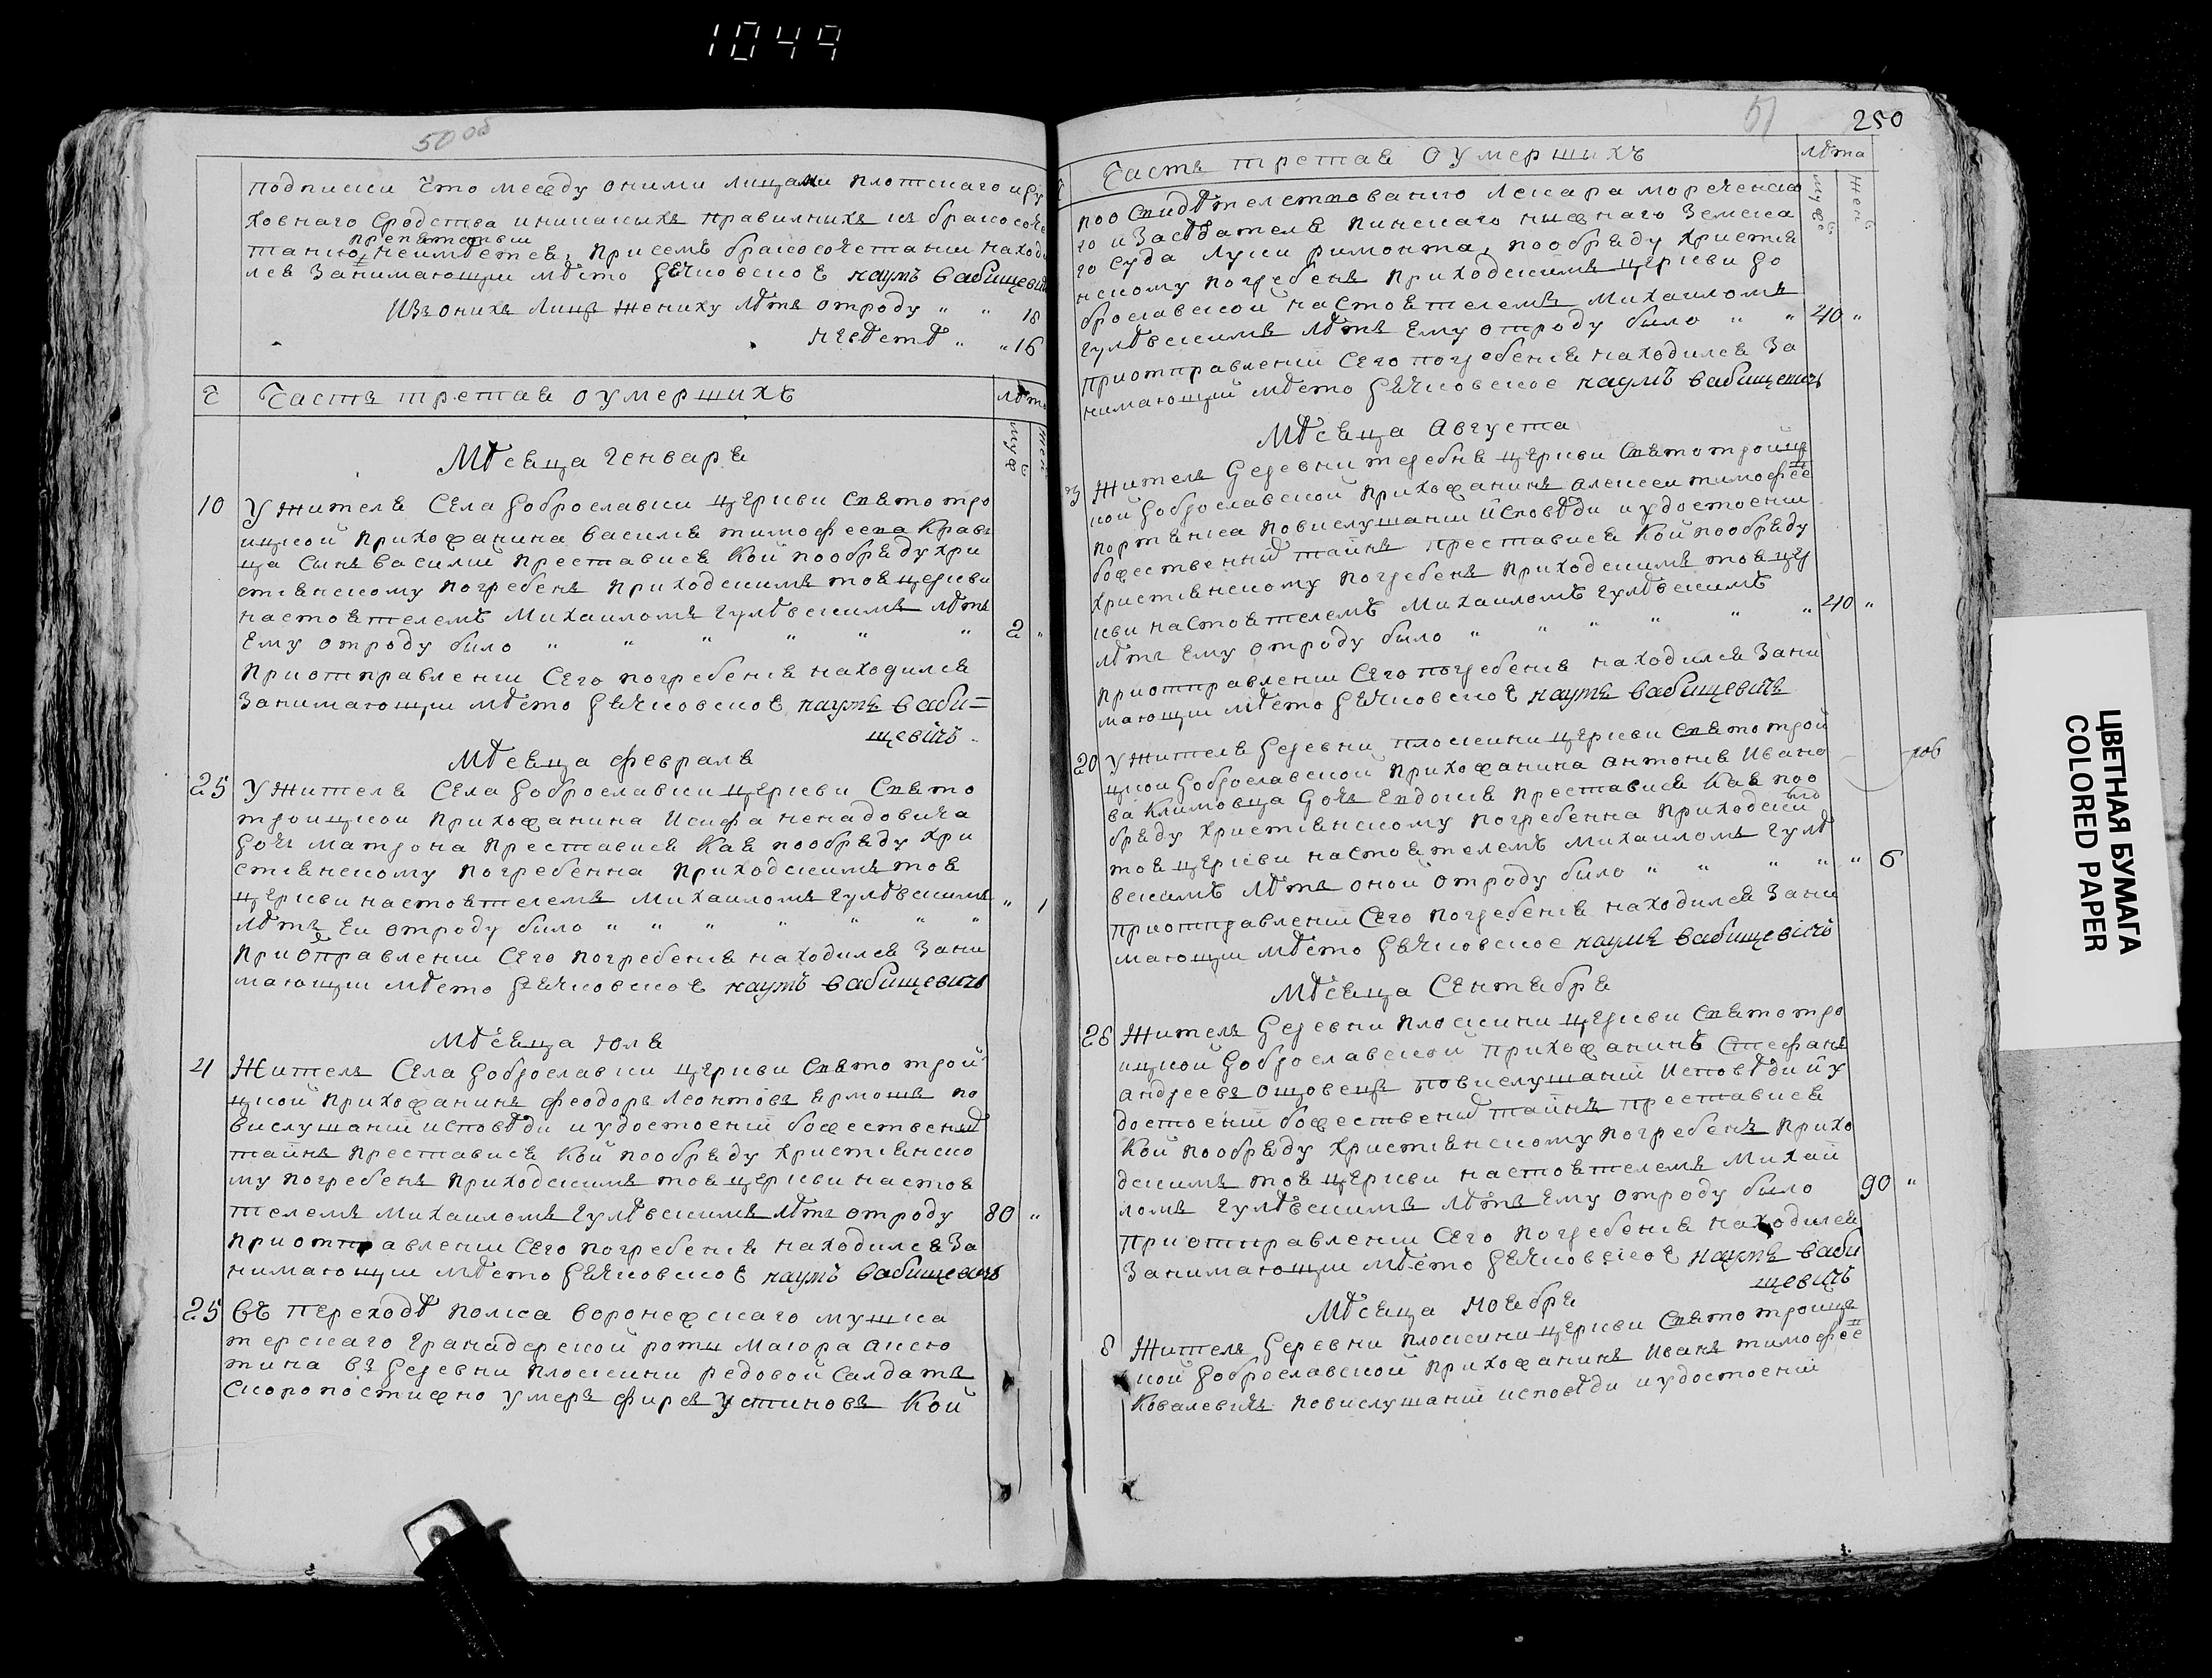 1049
50 об
подписки что между оними лицами плотскаго и ду
ховнаго сродства и никакихъ правилнихъ къ бракосоче
препятствии
танию неимѣется, присемъ бракосочетании находи
лся занимающии мѣсто дячковское наумъ вабищевичъ
Изъ онихъ лицъ жениху лѣтъ отроду " " 18
невѣстѣ " " 16
Ч Часть третая оумершихъ лѣта
муж жен
Мѣсяца генваря
10 У жителя села доброславки церкви святотро
ицкой прихожанина василя тимофеева кравъ
ца сынъ василий преставися кой пообряду хри
стиянскому погребенъ приходскимъ тоя церкви
настоятелемъ михаиломъ гулѣвскимъ лѣтъ
ему отроду било " " " " " " 2 "
приотправлении сего погребения находился
занимающии мѣсто дячковское наумъ ваби=
щевичъ
Мѣсяца февраля
25 У жителя села доброславки церкви свято
троицкой прихожанина исифа ненадовича
дочъ матрона преставися кая пообряду хри
стиянскому погребенна приходскимъ тоя
церкви настоятелемъ михаиломъ гулѣвскимъ " 1
лѣтъ еи отроду било " " " " " "
приотправлении сего погребения находился зани
мающии мѣсто дячковское наумъ вабищевичъ
Мѣсяца юля
4 Житель села доброславки церкви святотрой
цкой прихожанинъ феодоръ леонтовъ ярмошъ по
вислушаний исповѣди и удостоений божественнѣ
тайнъ преставися кой пообряду християнско
му погребенъ приходскимъ тоя церкви настоя
телемъ михаиломъ гулѣвскимъ лѣтъ отроду 80 "
приотправлении сего погребения находился за
нимающии мѣсто дячковское наумъ вабищевичъ
25 Въ переходѣ полка воронежскаго мушка
терскаго гранадерской роти маиора аксю
тина въ деревни плоскини редовой салдатъ
скоропостижно умеръ фирсъ устиновъ кой
51
250
Часть третая оумершихъ лѣта
муж жен
поо свидѣтелствованию лекара мореченско
го и засѣдателя пинскаго нижнаго земска
го суда луки римонта, пообряду христия
нскому погребенъ приходскимъ церкви до
брославской настоятелемъ михаиломъ
гулѣвскимъ лѣтъ ему отроду било " " 40 "
приотправлений сего погребения находился за
нимающий мѣсто дячковское наумъ вабищевичъ
Мѣсяца августа
3 Житель деревни теребня церкви святотройцъ
кой доброславской прихожанинъ алексеи тимофее
портянка повислушании исповѣди и удостоении
божественнѣ тайнъ преставися кой пообряду
християнскому погребенъ приходскимъ тоя цер
кви настоятелемъ михаиломъ гулѣвскимъ
лѣтъ ему отроду било " " " " " " 40 "
приотправлении сего погребения находился зани
мающии мѣсто дячковское наумъ вабищевичъ
20 У жителя деревни плоскини церкви святотрой
цкой доброславской прихожанина антония ивано
ва климовца дочъ евдокия преставися кая поо
бряду християнскому погребенна приходски мъ
тоя церкви настоятелемъ михаиломъ гулѣ
вскимъ лѣтъ оной отроду било " " " " " 6
приотправлений сего погребения находился зани
мающии мѣсто дячковское наумъ вабищевичъ
Мѣсяца сентября
26 Житель деревни плоскини церкви святотро
ицкой доброславской прихожанинъ стефанъ
андреевъ ощовецъ повислушаний исповѣди и у
достоений божественнѣ тайнъ преставися
кой пообряду християнскому погребенъ прихо
дскимъ тоя церкви настоятелемъ михай
ломъ гулѣвскимъ лѣтъ ему отроду било 90 "
приотправлении сего погребения находился
занимающии мѣсто дячковское наумъ ваби
щевичъ
Мѣсяца ноября
8 Житель деревни плоскини церкви святотроицъ
кой доброславской прихожанинъ иванъ тимофее
ковалевичъ повислушаний исповѣди и удостоений
ЦВЕТНАЯ БУМАГА
COLORED PAPER